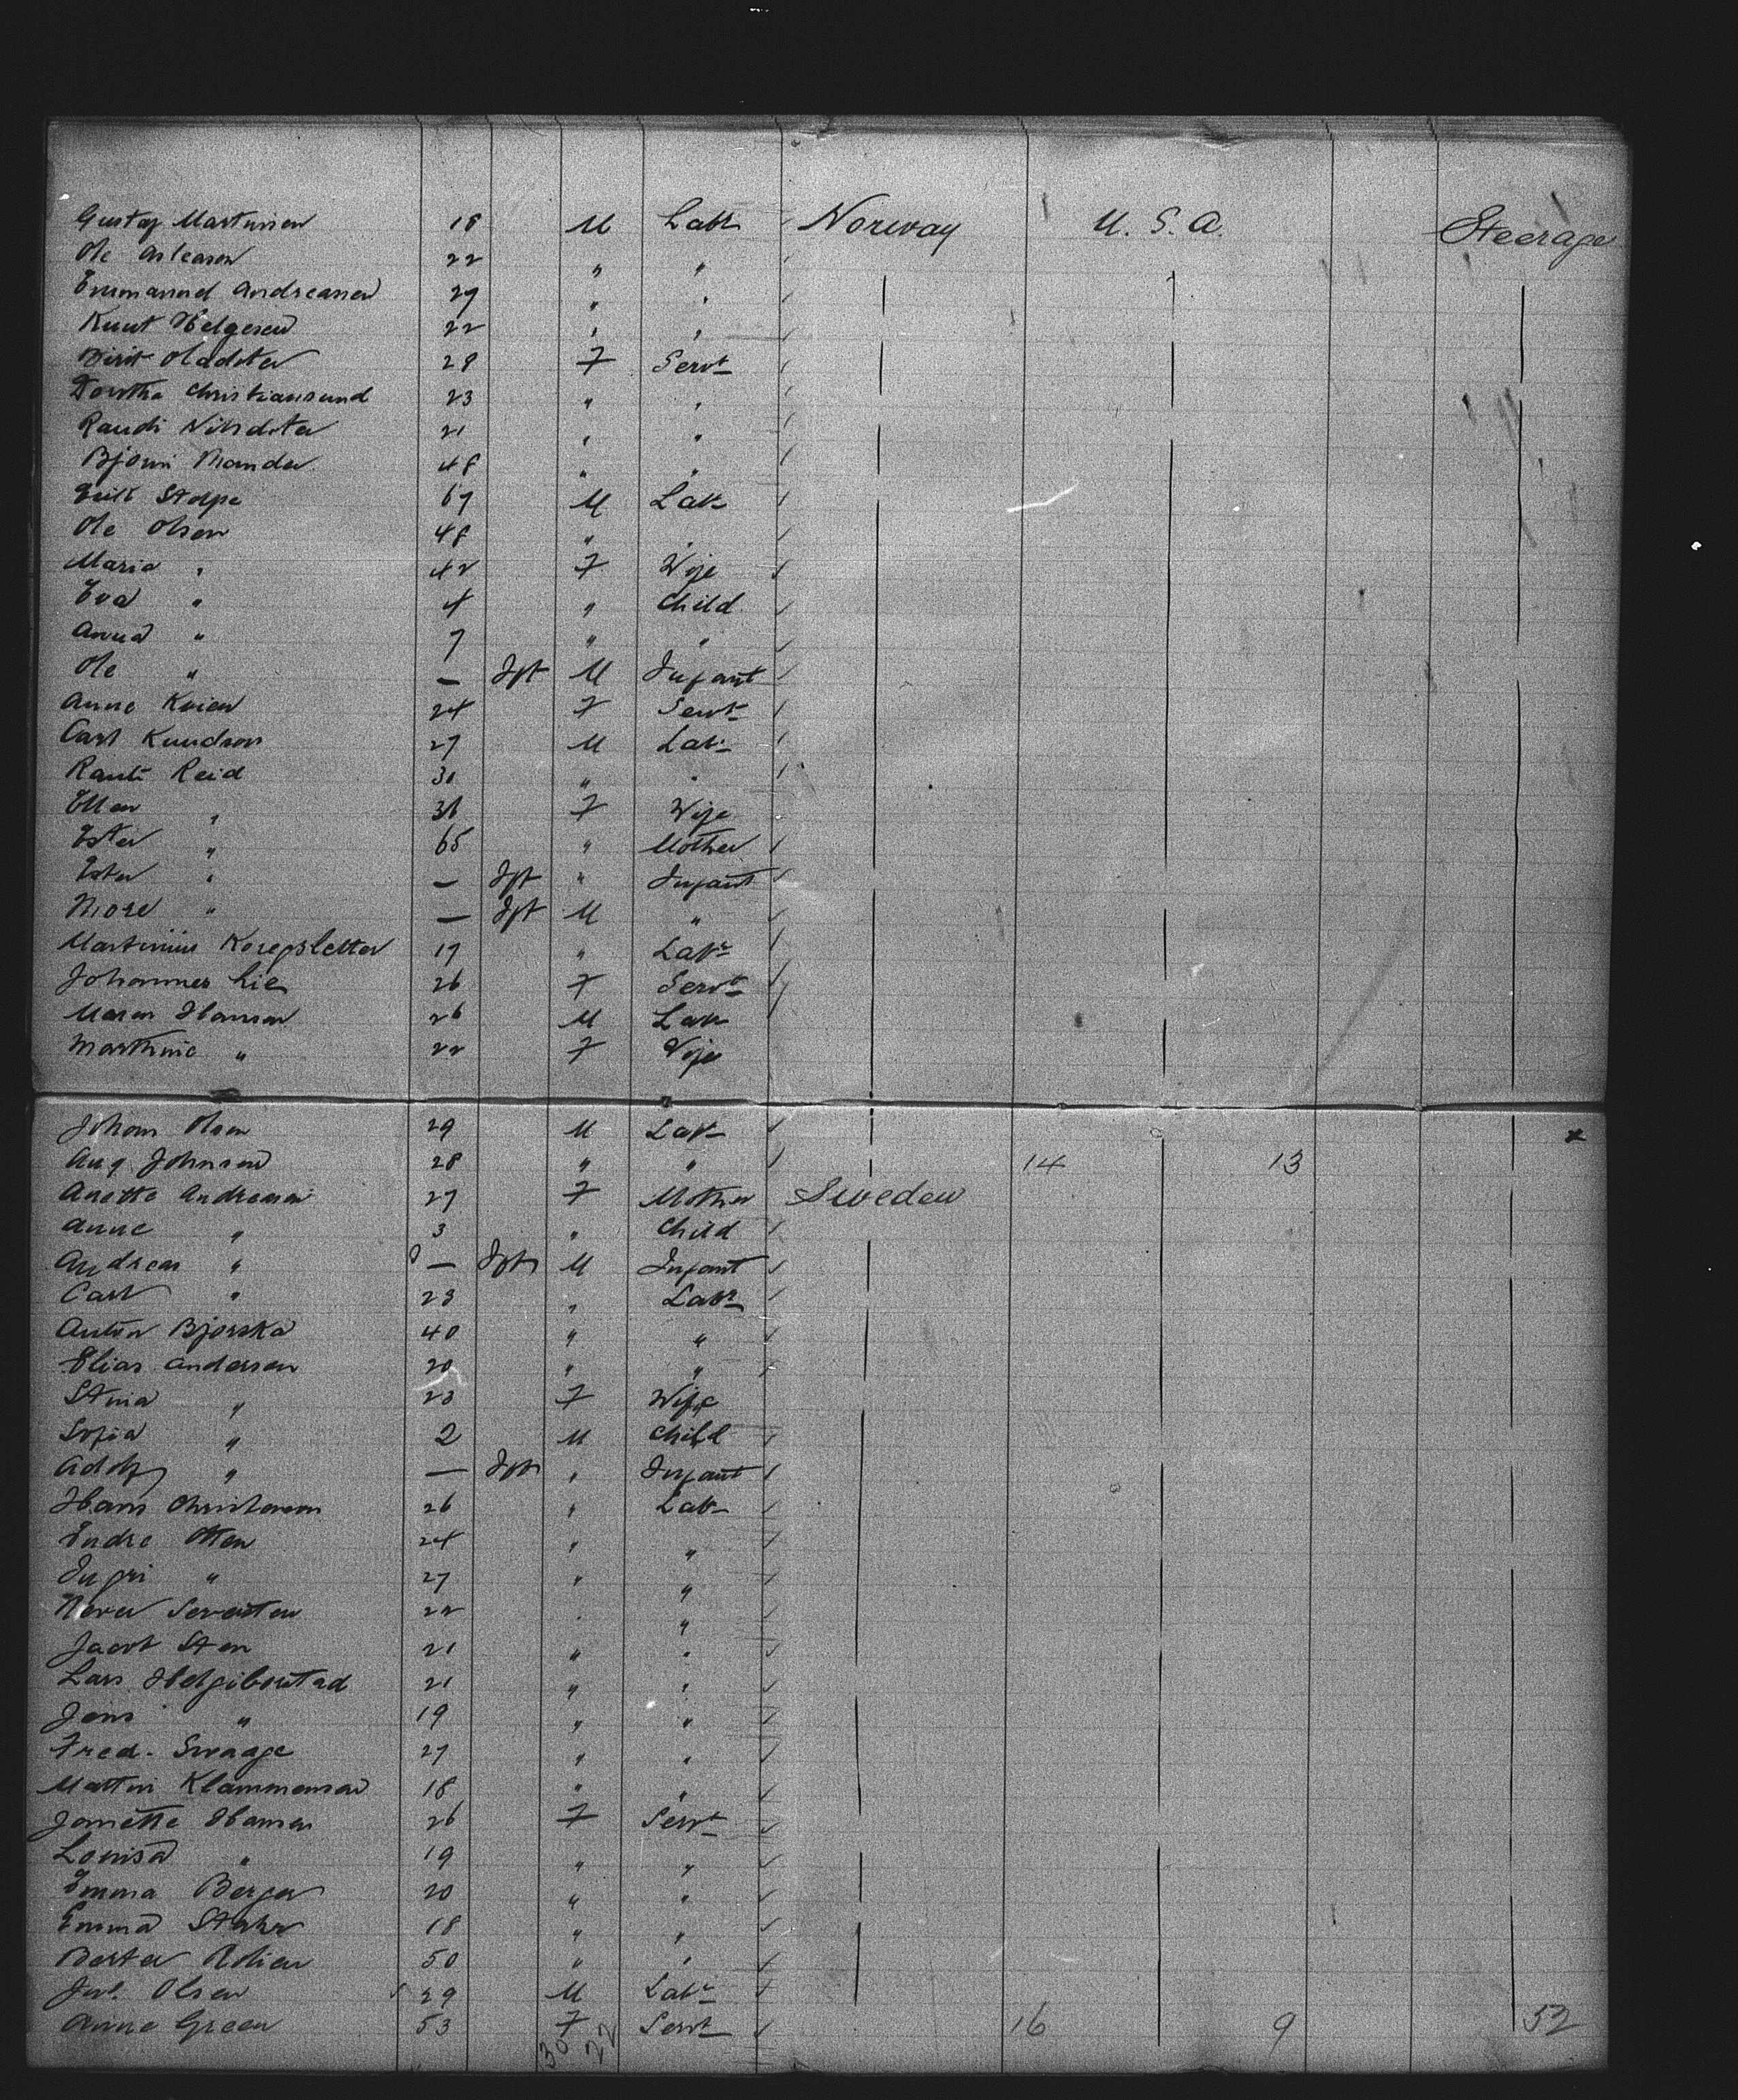 Gustaf Martinsen 18 M Labr Norway U. S. A. Steerage
Ole Asleason 22 " "
Emmanuel Andreasen 29 " "
Knut Helgesen 22 " "
Birit Oladoter 28 F Servt
Dorothe Christiansund 23 " "
Randi Nilsdoter 21 " "
Bjorni Monder 48 " "
Stolpe 67 M Labr
Ole Olsen 48 " "
Maria " 42 F Wife
Eva " 4 " Child
Anna " 7 " "
Ole " — Ift M Infant
Anne Koien 24 F Servt
Carl Knudson 27 M Labr
Reid 30 " "
Ellen " 36 F Wife
Ester " 65 " Mother
Ester " — Ift " Infant
More " — Ift M "
Martinius 17 " Labr
Johannes Lie 26 F Servt
Maren Hansen 26 M Labr
Marthine " 22 F Wife
Johan Olsen 29 M Labr
Aug Johnsen 28 " " 14 13
Anette Andreasen 27 F Mother Sweden
Anne " 3 " Child
Andreas " — Ift M Infant
Carl " 23 " Labr
Anton Bjorska 40 " "
Elias Anderson 20 " "
Stina " 23 F Wife
Sofia " 2 M Child
Adolf " — Ift " Infant
Hans Christensen 26 " Labr
Endre Otten 24 " "
Ingri " 27 " "
22 " "
Jacob Sten 21 " "
Lars Helgiboustad 21 " "
Jens " 19 " "
Fred. Swaage 27 " "
Mattin Klammensen 18 " "
Janette Hansen 26 F Servt
Louisa " 19 " "
Emma Berger 20 " "
Emma Stahr 18 " "
Berter 50 " "
Olsen 29 M Labr
Anne Green 53 F Servt 16 9 52
30 22